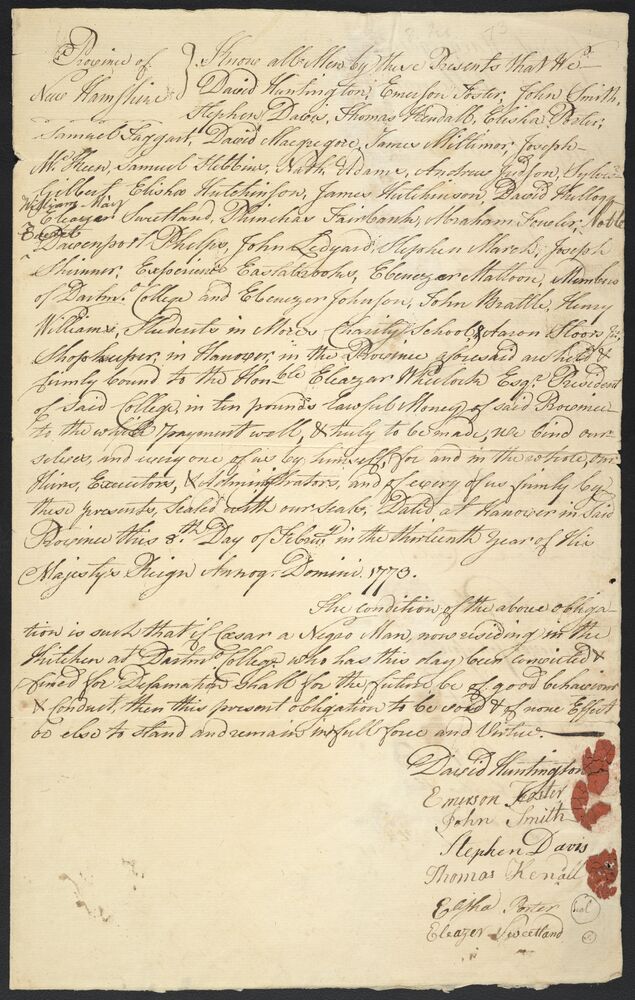 Province of } Know all Men by these Presents that We
New Hampshire } David Huntington, Emerson Foster, John Smith,
Stephen Davis, Thomas Kendall, Elisha Porter,
Samuel Taggart, David Macgregore, James Miltimor, Joseph
McKeen, Samuel Stebbins, Nath. Adams, Andrew Judson, Sylvr
Gilbert, Elisha Hutchinson, James Hutchinson, David Kellogg
William May
Eleazar Sweetland, Phinehas Fairbank, Abraham Fowler,
Davenport Phelps, John Ledyard, Stephen March, Joseph
Skinner, Experience Eastabrooks, Ebenezer Mattoon, Members
of Dartmo. College and Ebenezer Johnson, John Brattle, Henry
Williams, Students in Mores Charity School & Aaron Storrs
Shopkeeper, in Hanover in the Province aforesaid are held &
firmly bound to the Honble Eleazar Wheelock Esqr. President
of said College, in ten pounds lawful Money of said Province
to the which payment well, & truly to be made, we bind our-
selves, and every one of us by himself, for and in the whole, our
Heirs, Executors, & Administrators, and of every of us firmly by
these presents, Sealed with our seals, Dated at Hanover in Said
Province this 8.th Day of Febry. in the thirteenth year of His
Majestys Reign Annoq. Domini 1773.
The condition of the above obliga-
tion is such that if Cæsar a Negro Man, now residing in the
Kitchen at Dartmo College who has this day been convicted &
fined for Defamation shall for the future be of good behaviour
& conduct, then this present obligation to be void & of none Effect
or else to stand and remain in full force and Virtue.
David Huntington
Emerson Foster
John Smith
Stephen Davis
Thomas Kendall
Elisha Porter
Eleazer Sweetland